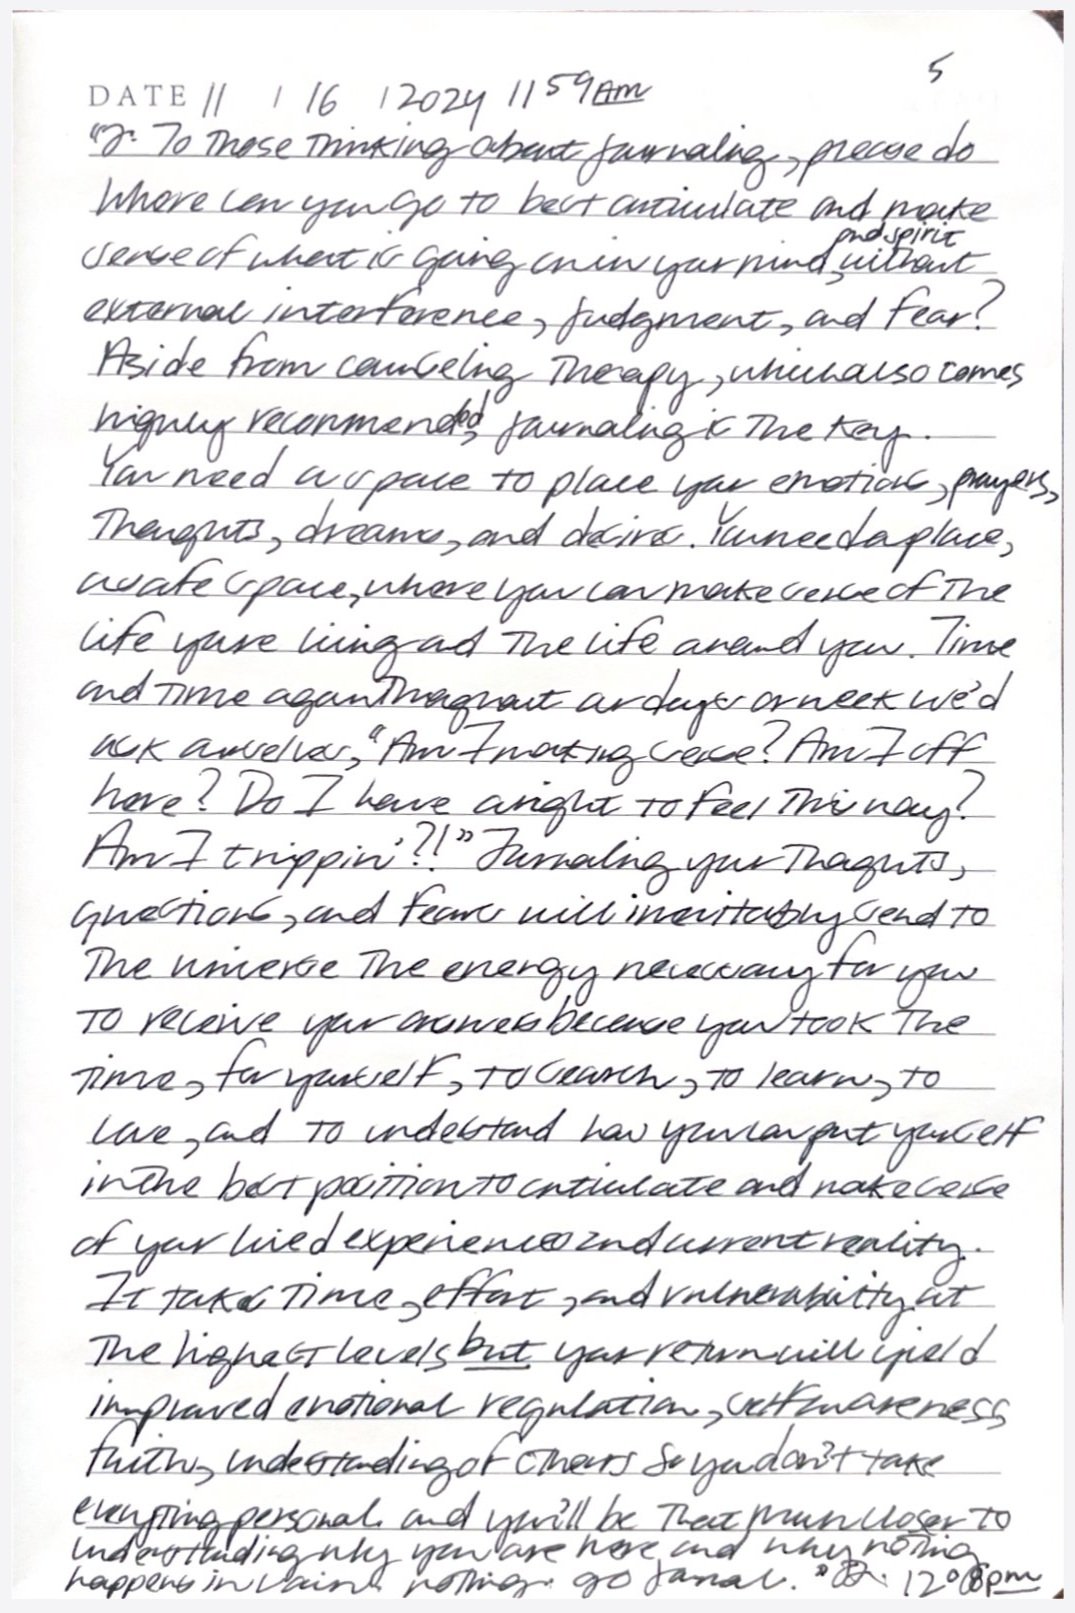 5
DATE 11 / 16 / 2024 11 59 AM
"J. To those thinking about journaling, please do
Where can you go to best articulate and make
and spirit
sense of what is going on in your mind, without
external interference, judgment, and fear?
Aside from counseling therapy, which also comes
highly recommended, journaling is the key.
You need a space to place your emotions, prayers,
thoughts, dreams, and desires. You need a place,
a safe space, where you can make sense of the
life you're living and the life around you. Time
and time again throughout our days or week we'd
ask ourselves, "Am I making sense? Am I off
here? Do I have a right to feel this way?
Am I trippin'?!" Journaling your thoughts,
questions, and fears will inevitably send to
the universe the energy necessary for you
to receive your answers because you took the
time, for yourself, to search, to learn, to
love, and to understand how you can put yourself
in the best position to articulate and make sense
of your lived experiences and current reality.
It takes time, effort, and vulnerability at
the highest levels but your return will yield
improved emotional regulation, self awareness,
faith, understanding of others so you don't take
everything personal. and you'll be that much closer to
understanding why you are here and why nothing
happens in vain. nothing. go journal." 12 08pm